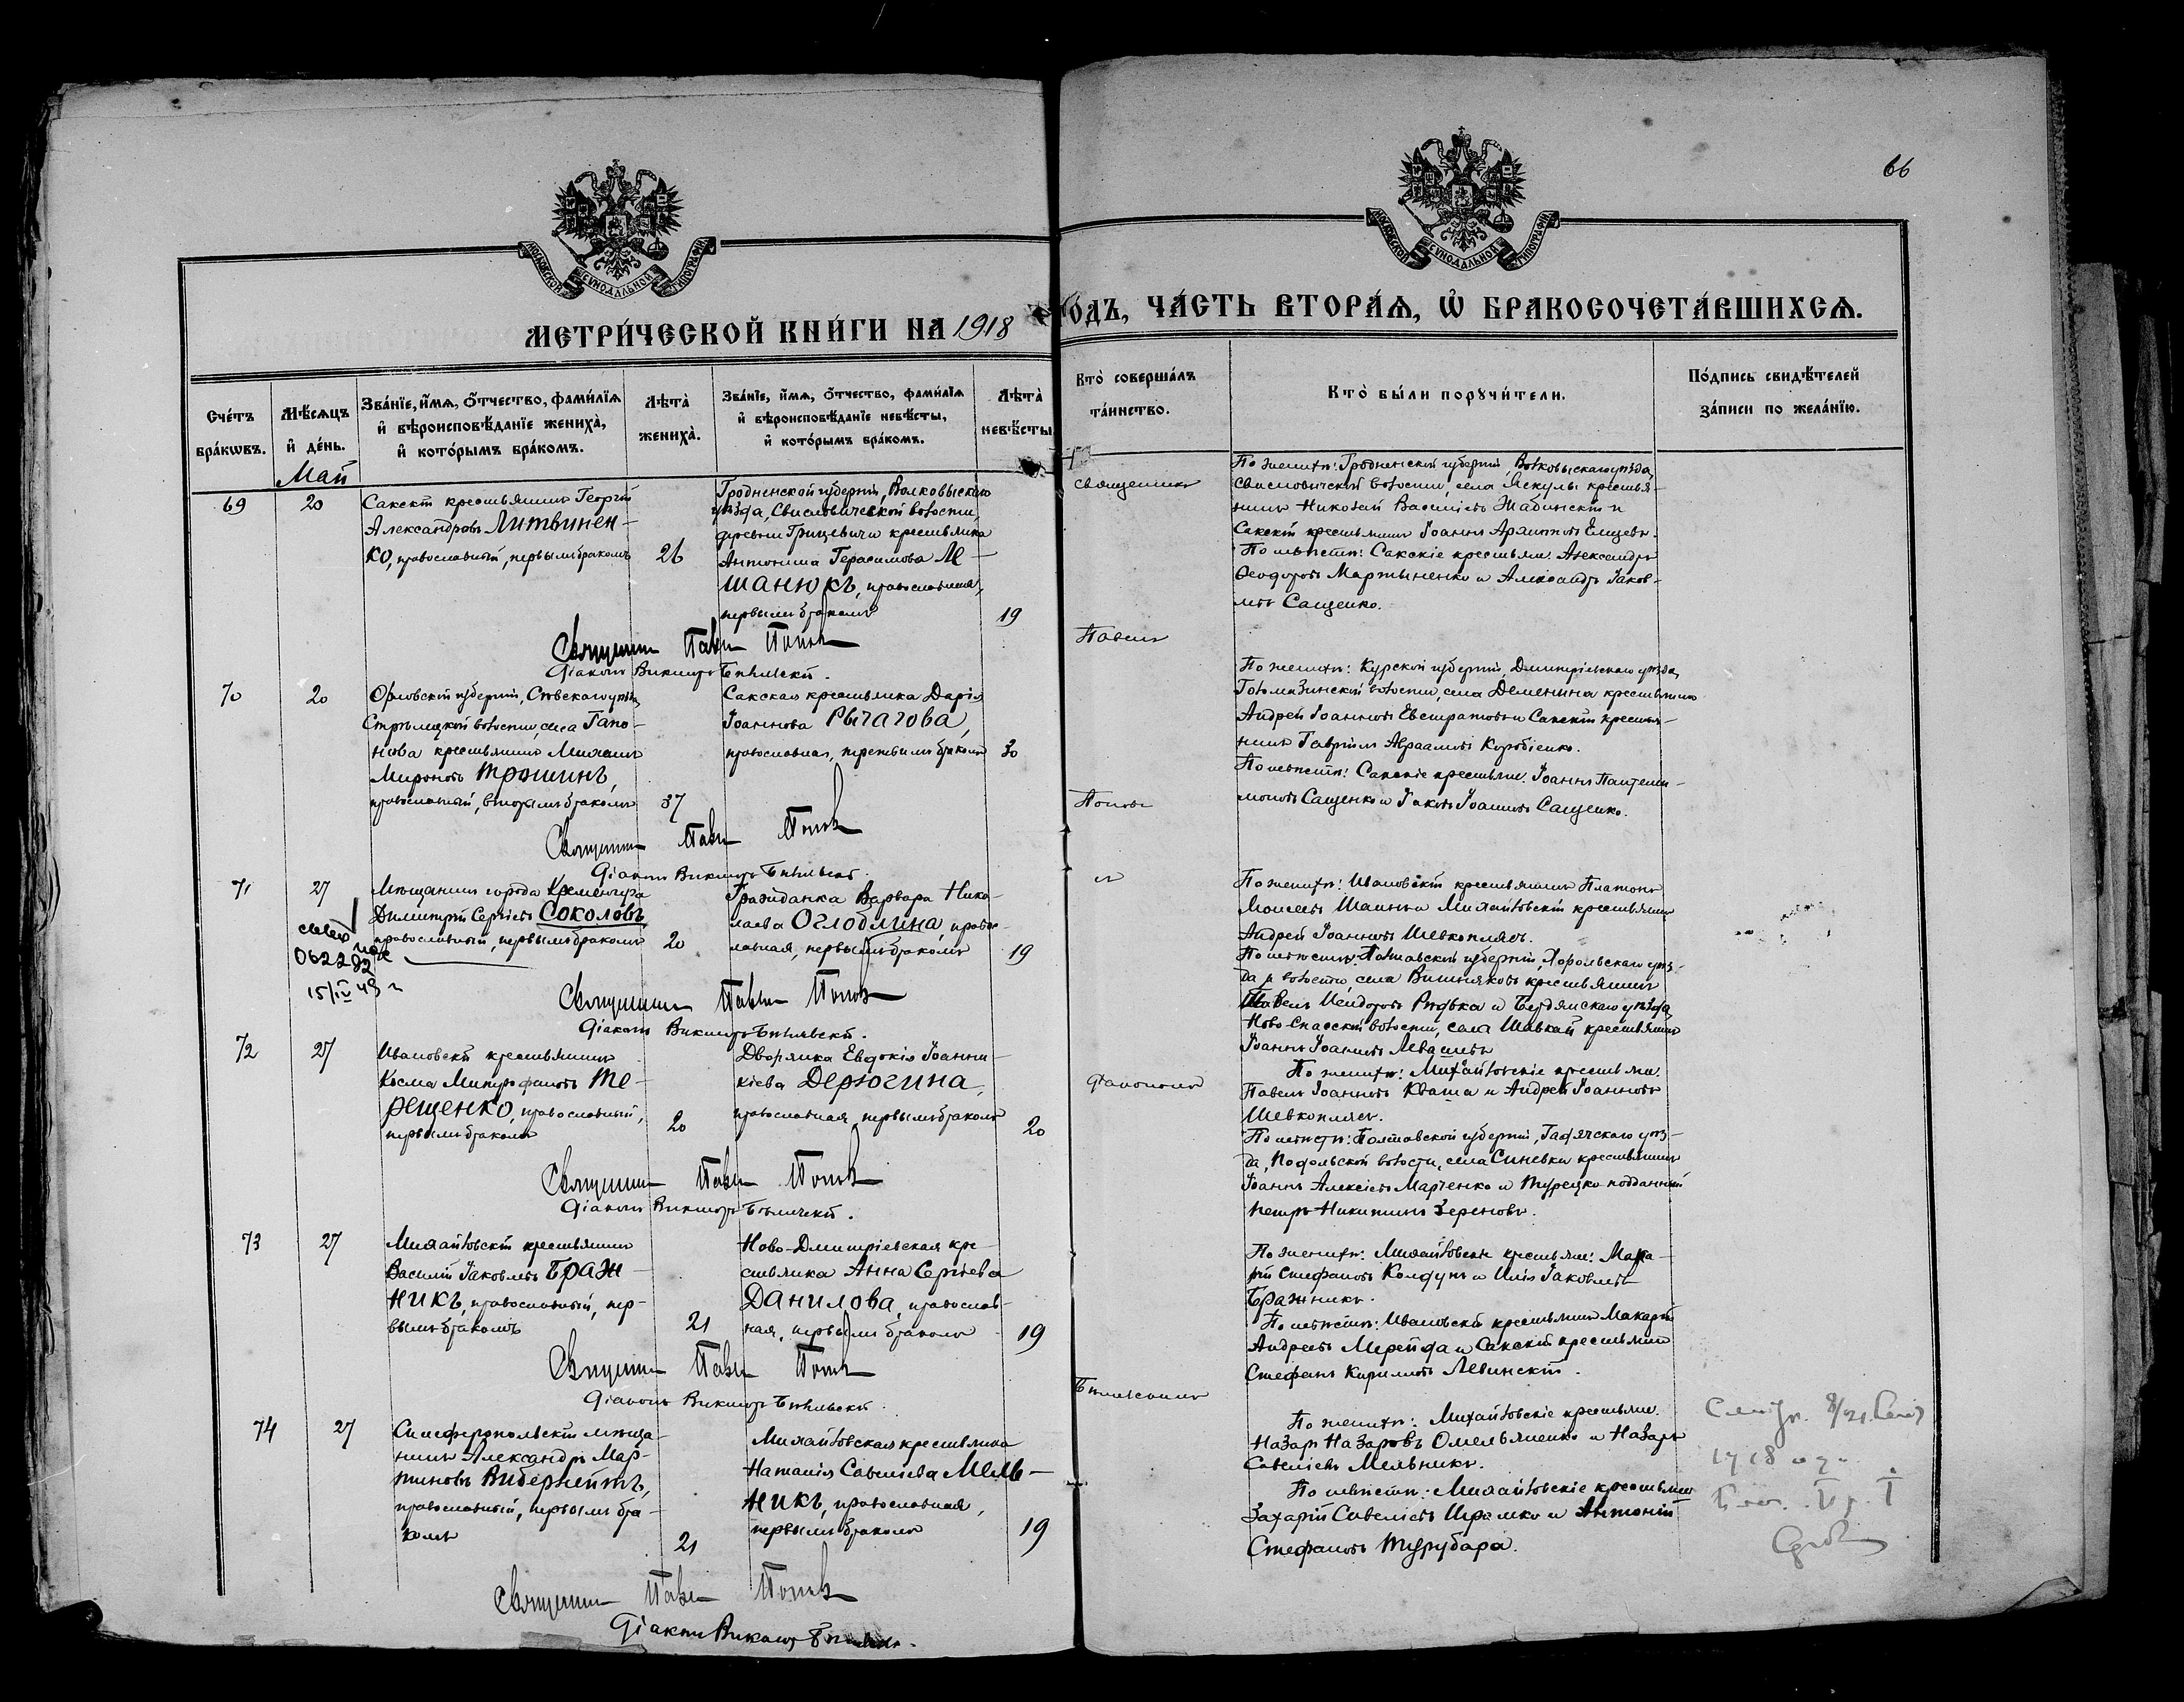 66
МОСКОВСКОЙ СУНОДАЛЬНОЙ ТИПОГРАФІИ
МОСКОВСКОЙ СУНОДАЛЬНОЙ ТИПОГРАФІИ
МЕТРИ́ЧЕСКОЙ КНИ́ГИ НА 1918 ГО́ДЪ, ЧА́СТЬ ВТОРА́Ѧ, Ѽ БРАКОСОЧЕТА́ВШИХСѦ.
Сче́тъ бра́кѡвъ.
Мѣ́сѧцъ и҆ де́нь.
Зва́нїе, и҆́мѧ, ѻ҆́тчество, фами́лїѧ
и҆ вѣроисповѣ́данїе жениха̀,
и҆ кото́рымъ бра́комъ.
Лѣ́та̀ жениха̀.
Зва́нїе, и҆́мѧ, ѻ҆́тчество, фами́лїѧ
и҆ вѣроисповѣ́данїе невѣ́сты,
и҆ кото́рымъ бра́комъ.
Лѣ́та̀ невѣ́сты
Кто̀ соверша́лъ
та́инство.
Кто̀ бы́ли порꙋчи́тели.
По́дпись свидѣ́телей
за́писи по жела́нїю.
Май
69
20
Сакскій крестьянинъ Георгій
Александровъ Литвинен-
ко, православный, первымъ бракомъ
26
Гродненской губерніи, Волковыскаго
уѣзда, Свисловической волости,
деревни Грицевичи крестьянка
Антонина Герасимова Ме-
шанюкъ, православная,
первымъ бракомъ
19
Священникъ
По женихѣ: Гродненской губерніи, Волковыскаго уѣзда,
Свисловической волости, села Якулы крестья-
нинъ Николай Васильевъ Жабинскій и
Сакскій крестьянинъ Іоаннъ Архиповъ Елицевъ.
По невѣстѣ: Сакскіе крестьяне: Александръ
Ѳеодоровъ Мартыненко и Александръ Іаков-
левъ Сащенко.
Священникъ Павелъ Поповъ
Діаконъ Викторъ Бѣльскій.
Павелъ
70
20
Орловской губерніи, Сѣвскаго уѣзда,
Стрѣлецкой волости, села Гапо-
нова крестьянинъ Михаилъ
Мироновъ Трошинъ,
православный, вторымъ бракомъ
37
Сакская крестьянка Дарія
Іоаннова Рычагова,
православная, третьимъ бракомъ
30
По женихѣ: Курской губерніи, Дмитріевскаго уѣзда,
волости, села Деменина крестьянинъ
Андрей Іоанновъ Евстратовъ и Сакскій крестья-
нинъ Гавріилъ Авраамовъ Коробіенко.
По невѣстѣ: Сакскіе крестьяне: Іоаннъ Пантелеи-
моновъ Сащенко и Іаковъ Іоанновъ Сащенко.
Поповъ
Священникъ Павелъ Поповъ
Діаконъ Викторъ Бѣльскій.
71
27
Мѣщанинъ города Кременчуга
Димитрій Сергіевъ Соколовъ
православный, первымъ бракомъ
20
062282
15/IV 49 г
Гражданка Варвара Нико-
лаева Оглоблина, право-
славная, первымъ бракомъ
19
съ
По женихѣ: Ивановскій крестьянинъ Платонъ
Моисеевъ Шаинъ и Михайловскій крестьянинъ
Андрей Іоанновъ Шевкоплясъ.
По невѣстѣ: Полтавской губерніи, Хорольскаго уѣз-
да, и волости, села Вишняковъ крестьянинъ
Павелъ Исидоровъ Рудька и Бердянскаго уѣзда,
Ново-Спасской волости, села Шавкай крестьянинъ
Іоаннъ Іоанновъ Левашевъ
Священникъ Павелъ Поповъ
Діаконъ Викторъ Бѣльскій.
72
27
Ивановскій крестьянинъ
Косма Митрофановъ Те-
рещенко, православный,
первымъ бракомъ
20
Дворянка Евдокія Іоанни-
кіева Дерюгина,
православная, первымъ бракомъ
20
діакономъ
По женихѣ: Михайловскіе крестьяне:
Павелъ Іоанновъ Кваша и Андрей Іоанновъ
Шевкоплясъ.
По невѣстѣ: Полтавской губерніи, Гадячскаго уѣз-
да, Подольской волости, села Синевки крестьянинъ
Іоаннъ Алексіевъ Марченко и Турецко подданный
Петръ Никитинъ Зереновъ.
Священникъ Павелъ Поповъ
Діаконъ Викторъ Бѣльскій.
73
27
Михайловскій крестьянинъ
Василій Іаковлевъ Браж-
никъ, православный, пер-
вымъ бракомъ
21
Ново-Дмитріевская кре-
стьянка Анна Сергіева
Данилова, православ-
ная, первымъ бракомъ
19
По женихѣ: Михайловскіе крестьяне: Мака-
рій Стефановъ Колдунъ и Илія Іаковлевъ
Бражникъ.
По невѣстѣ: Ивановскій крестьянинъ Макарій
Андреевъ Мерейда и Сакскій крестьянинъ
Стефанъ Кириловъ Левинскій.
Священникъ Павелъ Поповъ
Діаконъ Викторъ Бѣльскій.
Бѣльскимъ
74
27
Симферопольскій мѣща-
нинъ Александръ Мар-
тиновъ Вибернейтъ,
православный, первымъ бра-
комъ
21
Михайловская крестьянка
Наталія Савеліева Мель-
никъ, православная,
первымъ бракомъ
19
По женихѣ: Михайловскіе крестьяне:
Назаръ Назаровъ Омельяненко и Назаръ
Савеліевъ Мельникъ.
По невѣстѣ: Михайловскіе крестьяне
Захарій Савеліевъ Ирамко и Антоній
Стефановъ Турубара.
1918
Священникъ Павелъ Поповъ
Діаконъ Викторъ Бѣльскій.